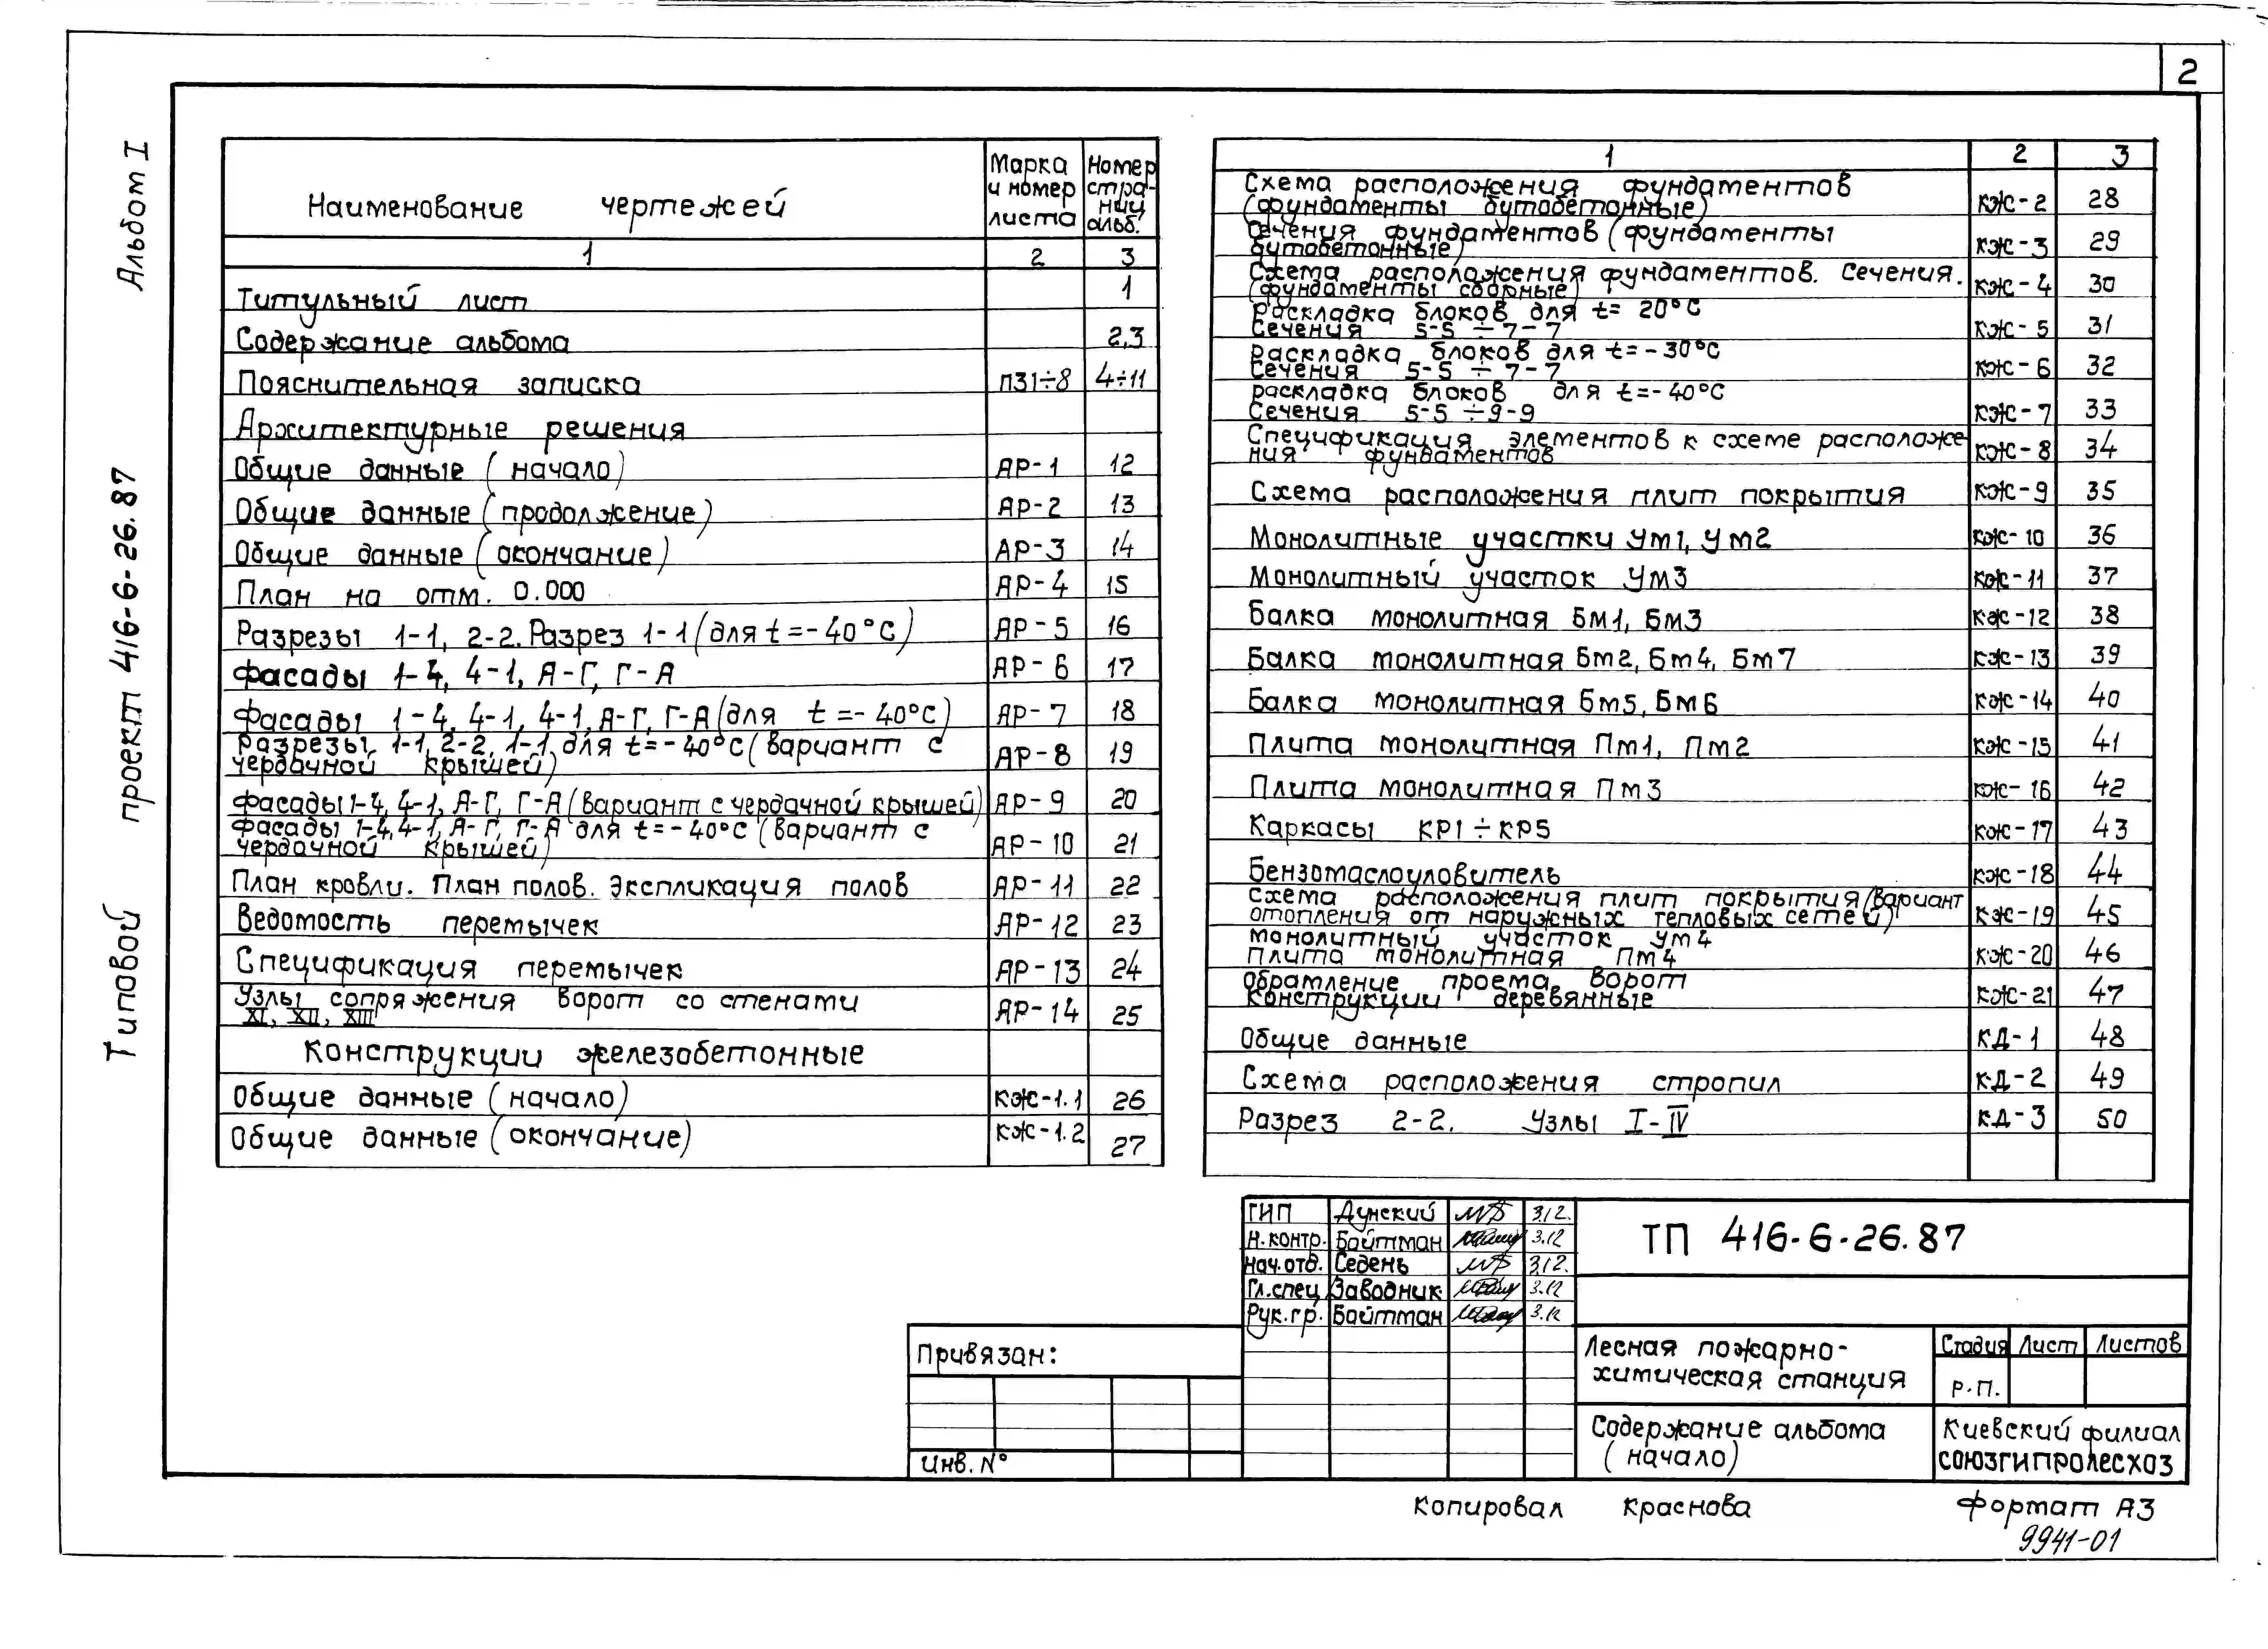 2
Альбом I
Типовой проект 416-6-26.87
Наименование чертежей
Марка и номер листа
Номер страниц альб.
1 2 3
Титульный лист 1
Содержание альбома 2,3
Пояснительная записка ПЗ1÷8 4÷11
Архитектурные решения
Общие данные (начало) АР-1 12
Общие данные (продолжение) АР-2 13
Общие данные (окончание) АР-3 14
План на отм. 0.000 АР-4 15
Разрезы 1-1, 2-2. Разрез 1-1 (для t=-40°C) АР-5 16
Фасады 1-4, 4-1, А-Г, Г-А АР-6 17
Фасады 1-4, 4-1, 4-1, А-Г, Г-А (для t=-40°C) АР-7 18
Разрезы 1-1, 2-2, 1-1, для t=-40°C (вариант с
чердачной крышей) АР-8 19
Фасады 1-4, 4-1, А-Г, Г-А (вариант с чердачной крышей) АР-9 20
Фасады 1-4, 4-1, А-Г, Г-А для t=-40°C (вариант с
чердачной крышей) АР-10 21
План кровли. План полов. Экспликация полов АР-11 22
Ведомость перемычек АР-12 23
Спецификация перемычек АР-13 24
Узлы сопряжения ворот со стенами
XI, XII, XIII АР-14 25
Конструкции железобетонные
Общие данные (начало) КЖ-1.1 26
Общие данные (окончание) КЖ-1.2 27
1 2 3
Схема расположения фундаментов
(фундаменты бутобетонные) КЖ-2 28
Сечения фундаментов (фундаменты
бутобетонные) КЖ-3 29
Схема расположения фундаментов. Сечения.
(фундаменты сборные) КЖ-4 30
Раскладка блоков для t= 20°C
Сечения 5-5 ÷ 7-7 КЖ-5 31
Раскладка блоков для t=-30°C
Сечения 5-5 ÷ 7-7 КЖ-6 32
раскладка блоков для t=-40°C
Сечения 5-5 ÷ 9-9 КЖ-7 33
Спецификация элементов к схеме расположе
ния фундаментов КЖ-8 34
Схема расположения плит покрытия КЖ-9 35
Монолитные участки Ум1, Ум2 КЖ-10 36
Монолитный участок Ум3 КЖ-11 37
Балка монолитная Бм1, Бм3 КЖ-12 38
Балка монолитная Бм2, Бм4, Бм7 КЖ-13 39
Балка монолитная Бм5, Бм6 КЖ-14 40
Плита монолитная Пм1, Пм2 КЖ-15 41
Плита монолитная Пм3 КЖ-16 42
Каркасы КР1÷КР5 КЖ-17 43
Бензомаслоуловитель КЖ-18 44
Схема расположения плит покрытия (вариант
отопления от наружных тепловых сетей) КЖ-19 45
Монолитный участок Ум4
Плита монолитная Пм4 КЖ-20 46
Обрамление проема ворот
Конструкции деревянные КЖ-21 47
Общие данные КД-1 48
Схема расположения стропил КД-2 49
Разрез 2-2. Узлы I-IV КД-3 50
ГИП Дунский 3.12.
Н.контр. Байтман 3.12
Нач.отд. Седень 3.12.
Гл.спец Заводник 3.12
Рук.гр. Байтман 3.12
ТП 416-6-26.87
Привязан:
Инв. №
Лесная пожарно-
химическая станция
Стадия Лист Листов
Р.П.
Содержание альбома
(начало)
Киевский филиал
СОЮЗГИПРОЛЕСХОЗ
Копировал Краснова
Формат А3
9941-01